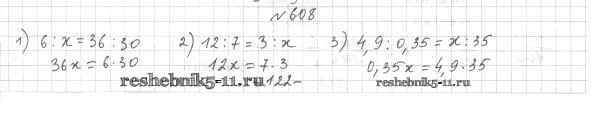 №608
1) 6 : x = 36 : 30 2) 12 : 7 = 3 : x 3) 4,9 : 0,35 = x : 35
36x = 6·30 12x = 7·3 0,35x = 4,9·35
reshebnik5-11.ru 122- reshebnik5-11.ru